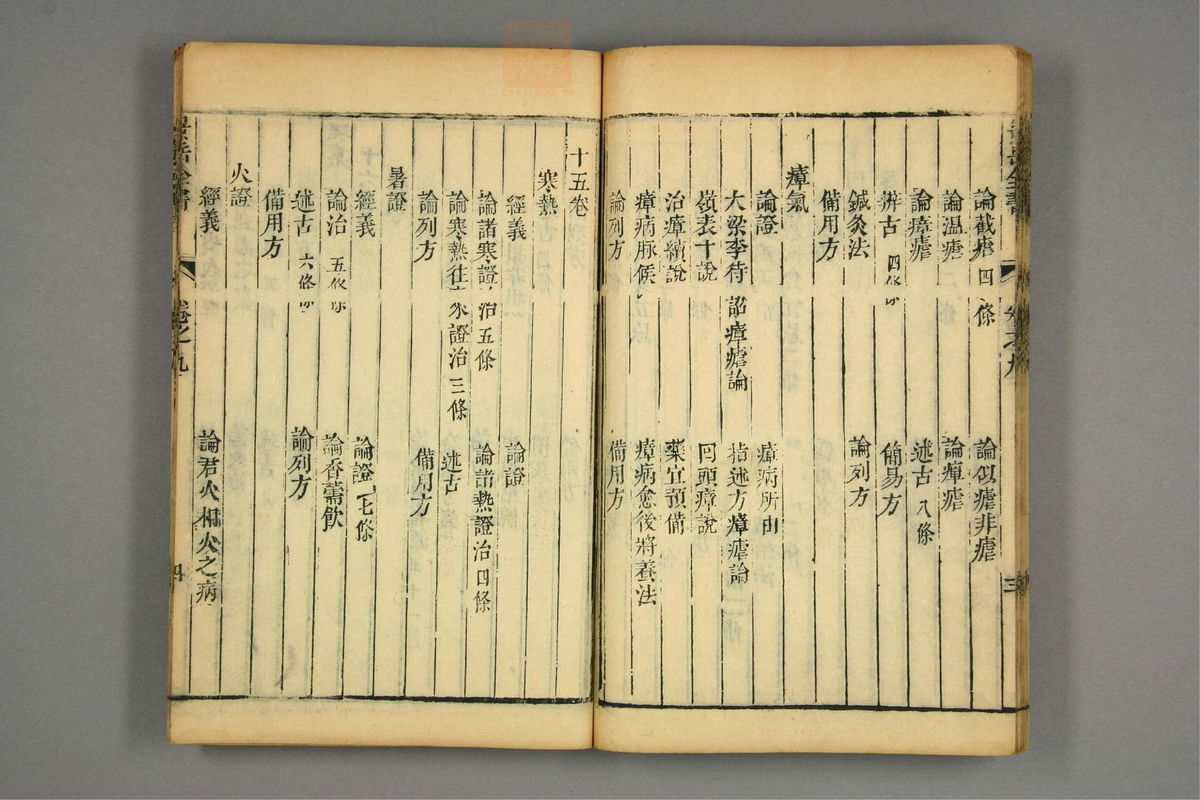 景岳全書 卷之九 三
論截瘧 四條 論似瘧非瘧
論温瘧 論瘴瘧
論瘴瘧 述古 八條
辨古 四條 簡易方
鍼灸法 論列方
備用方
瘴氣
論證 瘴病所由
大梁李待詔瘴瘧論 指迷方瘴瘧論
嶺表十說 回頭瘴說
治瘴續說 藥宜預備
瘴病脉候 瘴病愈後將養法
論列方 備用方
十五卷
寒熱
經義 論證
論諸寒證治五條 論諸熱證治四條
論寒熱往來證治三條 述古
論列方 備用方
暑證
經義 論證 七條
論治 五條 論香薷飲
述古 六條 論列方
備用方
火證
經義 論君火相火之病
景岳全書 卷之九 四